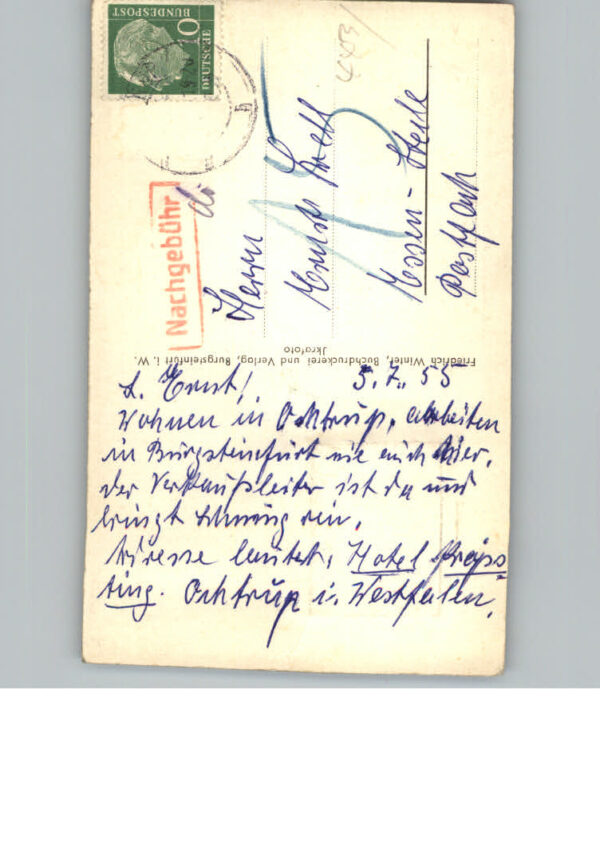 10
DEUTSCHE
BUNDESPOST
Nachgebühr
443/
15
Herrn
Ernst
Essen-
Postfach
Friedrich Winter, Buchdruckerei und Verlag, Burgsteinfurt i. W.
Jkrafoto
L. Ernst! 5.7.55
Wohnen in Ochtrup, arbeiten
in Burgsteinfurt wie auch hier,
der Verkaufsleiter ist da und
bringt Schwung rein.
Adresse lautet, Hotel
Ochtrup i. Westfalen.